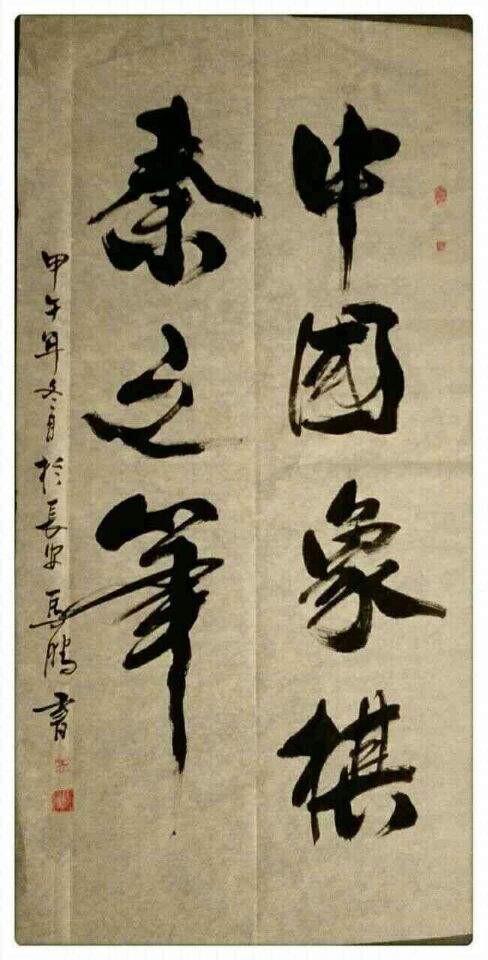 中國象棋
秦之筆
甲午年冬月於長安馬騰書